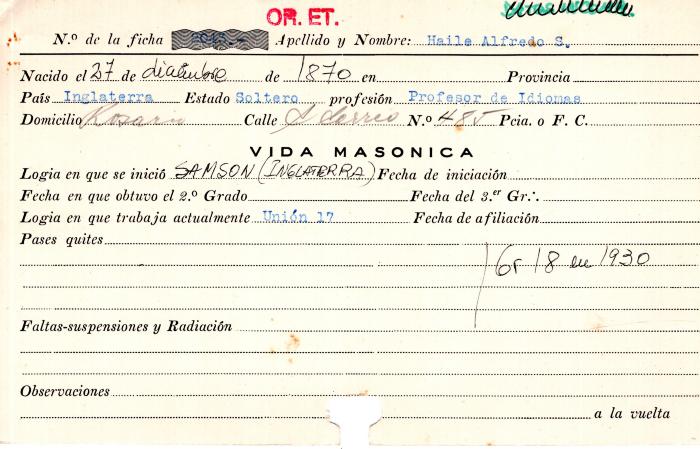 OR. ET.
N.º de la ficha Apellido y Nombre: Haile Alfredo S.
Nacido el 27 de diciembre de 1870 en Provincia
País Inglaterra Estado Soltero profesión Profesor de Idiomas
Domicilio Rosario Calle N.º 485 Pcia. o F. C.
VIDA MASONICA
Logia en que se inició SAMSON (INGLATERRA) Fecha de iniciación
Fecha en que obtuvo el 2.º Grado Fecha del 3.er Gr∴
Logia en que trabaja actualmente Unión 17 Fecha de afiliación
Pases quites
Gr 18 en 1930
Faltas-suspensiones y Radiación
Observaciones
a la vuelta